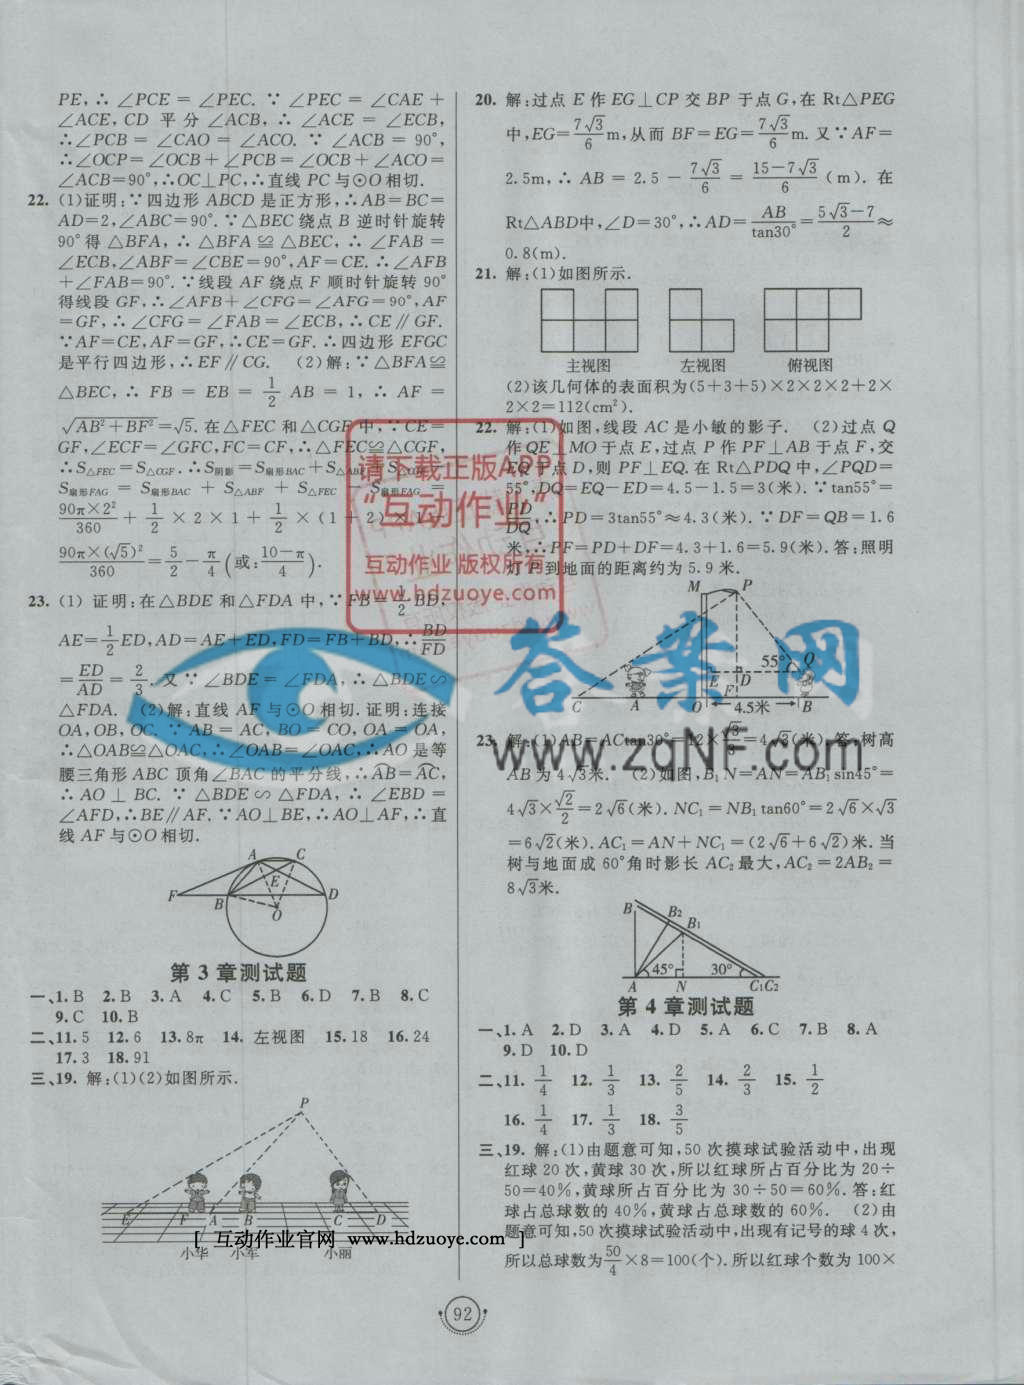 PE,∴ ∠PCE = ∠PEC. ∵ ∠PEC = ∠CAE +
∠ACE, CD 平分 ∠ACB,∴ ∠ACE = ∠ECB,
∴∠PCB = ∠CAO = ∠ACO. ∵ ∠ACB = 90°,
∴∠OCP=∠OCB+∠PCB=∠OCB+∠ACO=
∠ACB=90°,∴OC⊥PC,∴直线 PC与⊙O 相切.
22. (1)证明:∵四边形 ABCD 是正方形,∴AB=BC=
AD=2,∠ABC=90°.∵△BEC 绕点 B 逆时针旋转
90°得 △BFA,∴ △BFA ≌ △BEC,∴ ∠FAB =
∠ECB,∠ABF=∠CBE=90°,AF=CE.∴∠AFB
+∠FAB=90°.∵线段 AF 绕点 F 顺时针旋转 90°
得线段 GF,∴∠AFB+∠CFG=∠AFG=90°,AF
=GF,∴∠CFG=∠FAB=∠ECB,∴CE∥GF.
∵AF=CE,AF=GF,∴CE=GF.∴四边形 EFGC
是平行四边形,∴EF∥CG. (2)解:∵△BFA≌
△BEC,∴ FB = EB = 1/2 AB = 1,∴ AF =
√(AB²+BF²)=√5.在△FEC 和△CGF 中,∵CE=
GF,∠ECF=∠GFC,FC=CF,∴△FEC≌△CGF,
∴S△FEC=S△CGF.∴S阴影=S扇形BAC+S△ABF+S△CGF-
S扇形FAG = S扇形BAC + S△ABF + S△FEC - S扇形FAG =
90π×2²/360 + 1/2 × 2 × 1 + 1/2 × (1 + 2) × 1 -
90π×(√5)²/360 = 5/2 - π/4 (或:(10-π)/4).
23. (1) 证明:在△BDE 和△FDA 中,∵FB=1/2 BD,
AE=1/2 ED,AD=AE+ED,FD=FB+BD,∴BD/FD
=ED/AD=2/3.又∵∠BDE=∠FDA,∴△BDE∽
△FDA. (2)解:直线 AF与⊙O 相切.证明:连接
OA,OB,OC. ∵ AB = AC,BO = CO,OA = OA,
∴△OAB≌△OAC,∴∠OAB=∠OAC,∴AO 是等
腰三角形 ABC 顶角∠BAC 的平分线,∴AB=AC,
∴AO ⊥ BC. ∵ △BDE ∽ △FDA,∴ ∠EBD =
∠AFD,∴BE∥AF.∵AO⊥BE,∴AO⊥AF,∴直
线 AF 与⊙O 相切.
A C
F E
B D
O
第 3 章测试题
一、1. B 2. B 3. A 4. C 5. B 6. D 7. B 8. C
9. C 10. B
二、11. 5 12. 6 13. 8π 14. 左视图 15. 18 16. 24
17. 3 18. 91
三、19. 解:(1)(2)如图所示.
P
E F A B C D
小华 小军 小丽
[ 互动作业官网 www.hdzuoye.com ]
20. 解:过点 E 作 EG⊥CP 交 BP 于点 G,在 Rt△PEG
中,EG=7√3/6 m,从而 BF=EG=7√3/6 m. 又∵AF=
2.5m,∴ AB = 2.5 - 7√3/6 = (15-7√3)/6 (m). 在
Rt△ABD中,∠D=30°,∴AD=AB/tan30°=(5√3-7)/2≈
0.8(m).
21. 解:(1)如图所示.
主视图 左视图 俯视图
(2)该几何体的表面积为(5+3+5)×2×2×2+2×
2×2=112(cm²).
22. 解:(1)如图,线段 AC 是小敏的影子. (2)过点 Q
作 QE⊥MO 于点 E,过点 P 作 PF⊥AB 于点 F,交
EQ于点 D,则 PF⊥EQ.在 Rt△PDQ 中,∠PQD=
55°,DQ=EQ-ED=4.5-1.5=3(米).∵tan55°=
PD/DQ,∴PD=3tan55°≈4.3(米).∵DF=QB=1.6
米,∴PF=PD+DF=4.3+1.6=5.9(米).答:照明
灯P到地面的距离约为 5.9 米.
M P
55° Q
E D
F
C A O 4.5米 B
23. 解:(1)AB=ACtan30°=12×√3/3=4√3(米).答:树高
AB 为 4√3米. (2)如图,B₁N=AN=AB₁sin45°=
4√3×√2/2=2√6(米). NC₁=NB₁tan60°=2√6×√3
=6√2(米).AC₁=AN+NC₁=(2√6+6√2)米.当
树与地面成 60°角时影长 AC₂最大,AC₂=2AB₂=
8√3米.
B B₂
B₁
45° 30°
A N C₁C₂
第 4 章测试题
一、1. A 2. D 3. A 4. D 5. A 6. C 7. B 8. A
9. D 10. D
二、11. 1/4 12. 1/3 13. 2/5 14. 2/3 15. 1/2
16. 1/4 17. 1/3 18. 3/5
三、19. 解:(1)由题意可知,50 次摸球试验活动中,出现
红球 20 次,黄球 30 次,所以红球所占百分比为 20÷
50=40%,黄球所占百分比为 30÷50=60%.答:红
球占总球数的 40%,黄球占总球数的 60%. (2)由
题意可知,50 次摸球试验活动中,出现有记号的球 4 次,
所以总球数为50/4×8=100(个).所以红球个数为 100×
92
请下载正版APP
“互动作业”
互动作业 版权所有
www.hdzuoye.com
答案网
www.zqNF.com